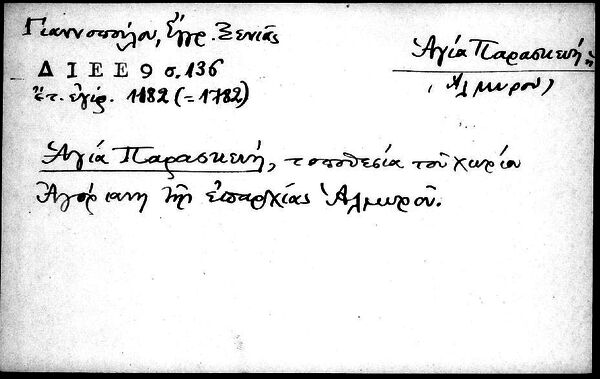 Γιαννοπούλου, Ἔγγρ. Ξενιᾶς
Ἁγία Παρασκευή
Δ Ι Ε Ε 9 σ. 136
(Ἁλμυροῦ)
ἔτ. ἐγγρ. 1182 (= 1782)
Ἁγία Παρασκευή, τοποθεσία τοῦ χωρίου
Ἀγόριανη τῆς ἐπαρχίας Ἁλμυροῦ.